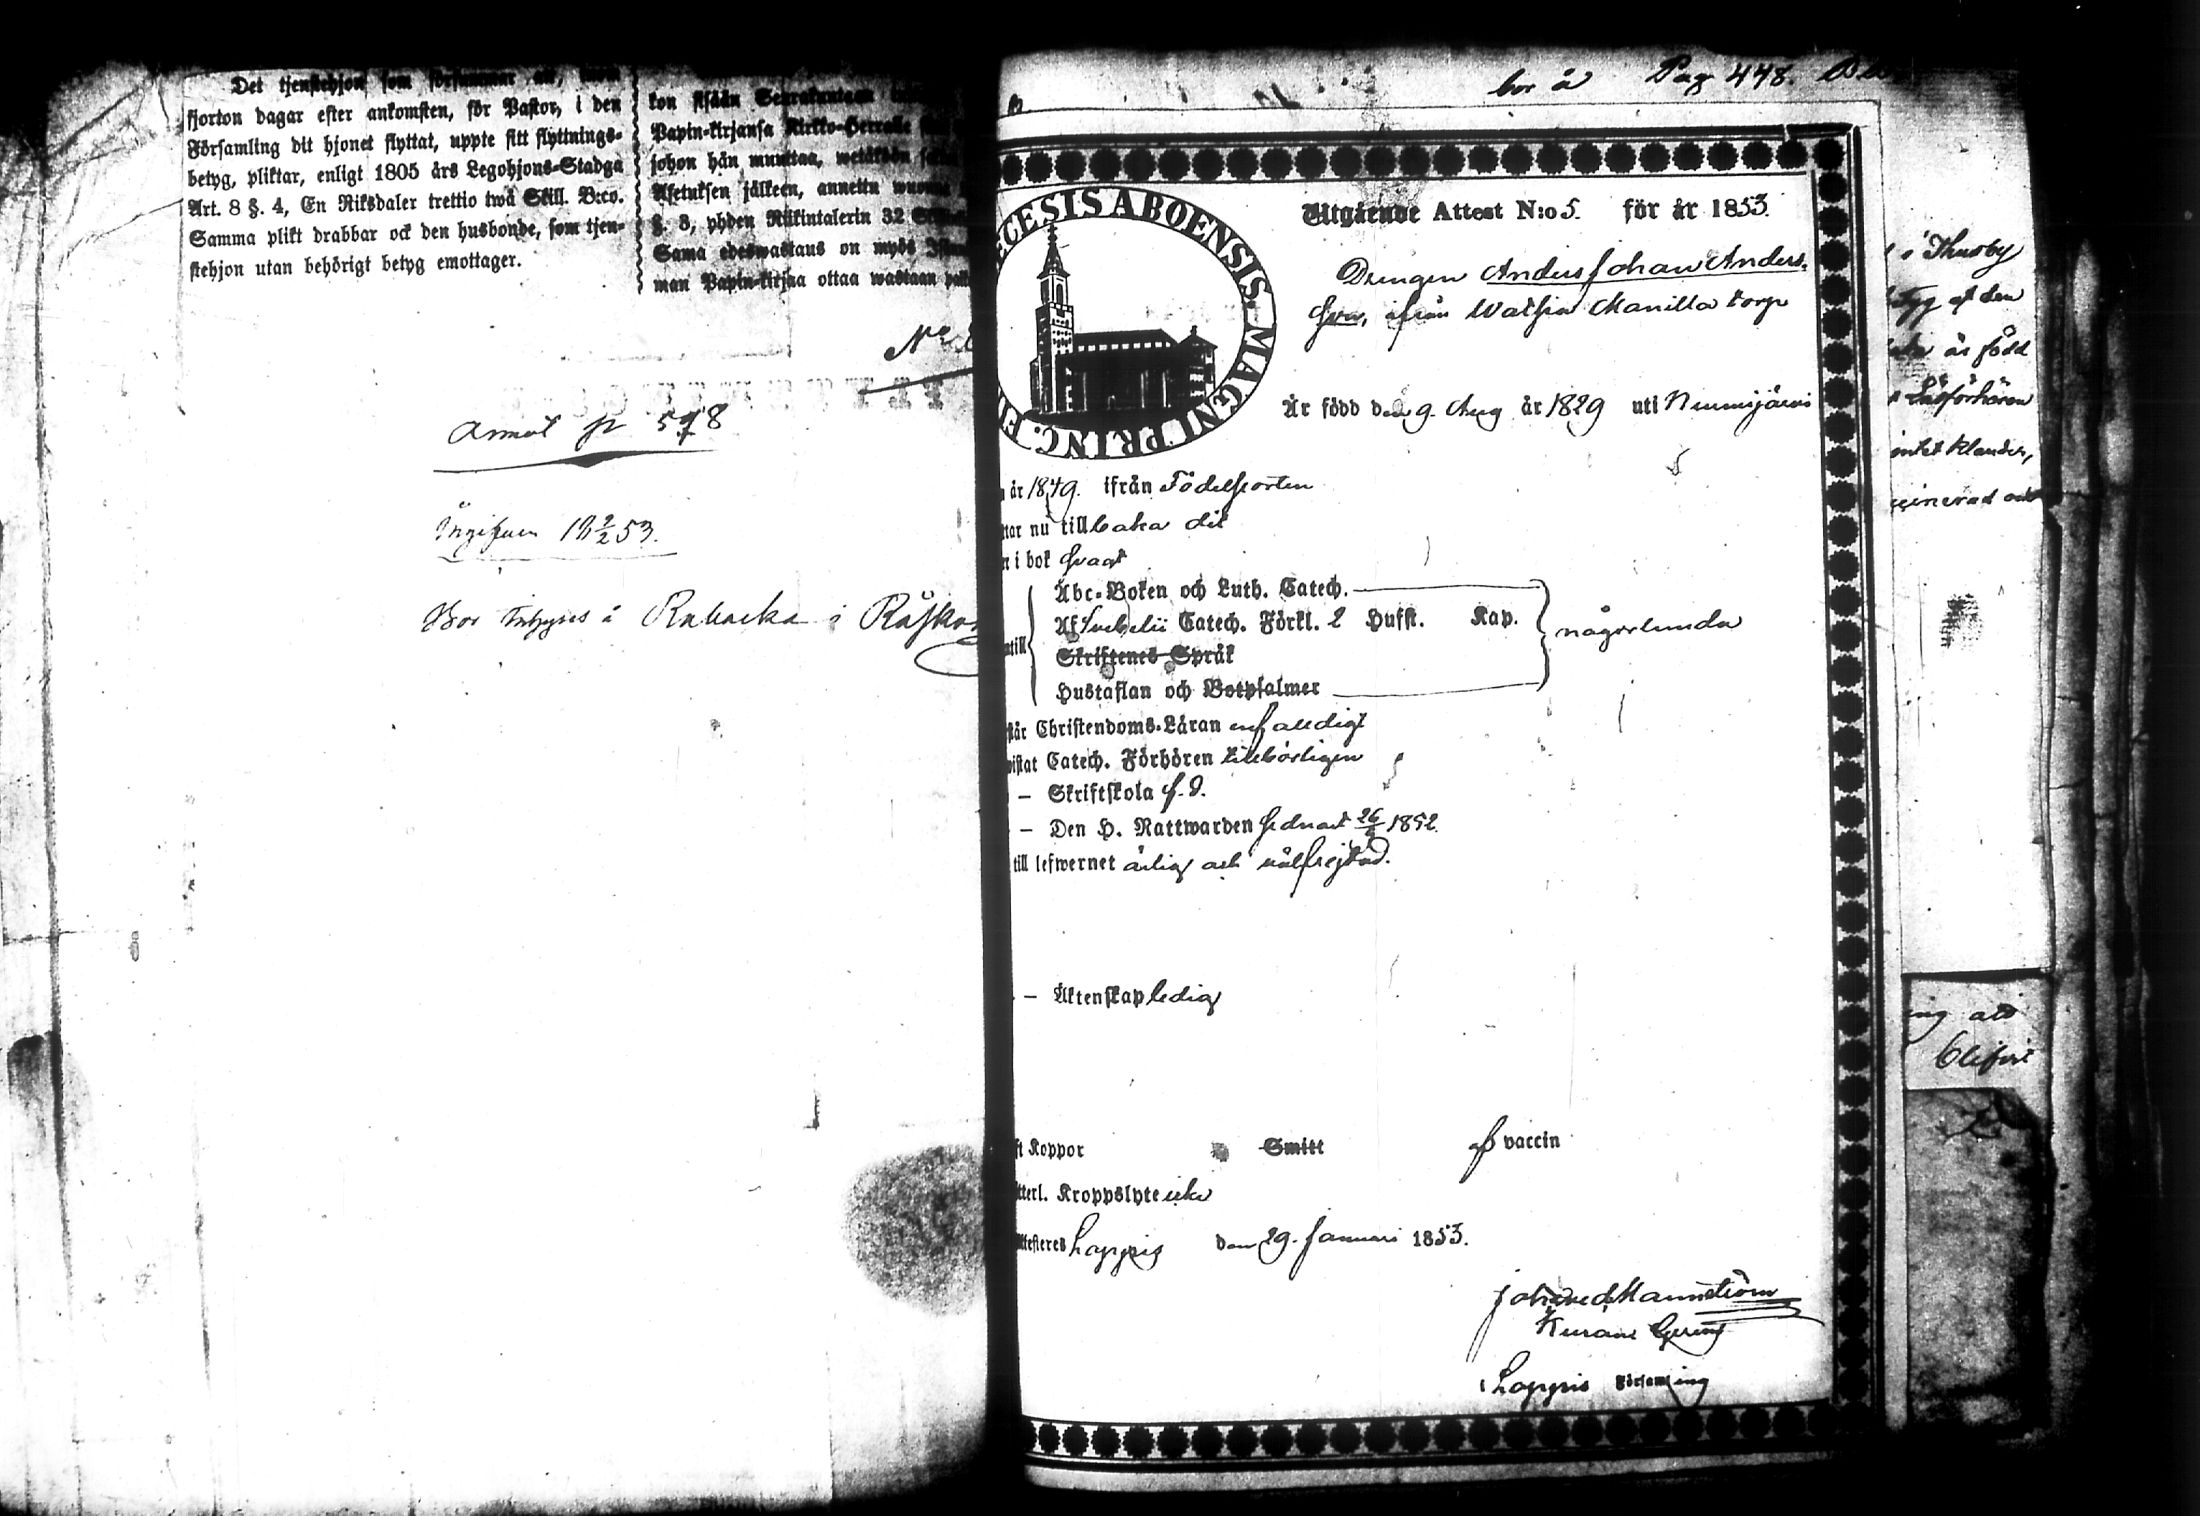 Det tjenstehjon som försummar att, inom
fjorton dagar efter ankomsten, för Pastor, i den
Församling dit hjonet flyttat, uppte sitt flyttnings-
betyg, pliktar, enligt 1805 års Legohjons-Stadga
Art. 8 §. 4, En Riksdaler trettio twå Skill. B:co.
Samma plikt drabbar ock den husbonde, som tjen-
stehjon utan behörigt betyg emottager.
kon sisään Seurakuntaan
Papin-kirjansa Kirkko-Herralle
johon hän muuttaa, wetäköön
Asetuksen jälkeen, annettu wuonna
§. 8, yhden Riikintalerin 32
Sama edeswastaus on myös
man Papin-kirjaa ottaa wastaan
No
Annot p 578
Ingifven 18 9/2 53.
Bor inhyses å Rabacka i
bor å Pag 448.
ECESIS ABOENSIS. MAGNI PRINC. FI
Utgående Attest N:o 5. för år 1853.
Drengen Anders Johan Anders-
son, ifrån Watsia Manilla torp
Är född den 9. Aug år 1829 uti Nummijärvi
år 1849. ifrån Födelseorten
tar nu tillbaka dit
i bok svagt
Abc-Boken och Luth. Catech.
Af Svebelii Catech. Förkl. 2 Hufst. Kap.
någorlunda
Skriftenes Språk
Hustaflan och Botpsalmer
står Christendoms-Läran enfaldigt
wistat Catech. Förhören tillbörligen
— Skriftskola f. d.
— Den H. Nattwarden sednast 26/6 1852.
till lefwernet ärlig och välfrejdad.
— Äktenskap ledig
ft Koppor Smitt af vaccin
tterl. Kroppslyte icke
ttesteres Loppis den 29. Januari 1853.
Loppis Församling
i Thusby
tyg af den
är född
Läsförhören
intet klander,